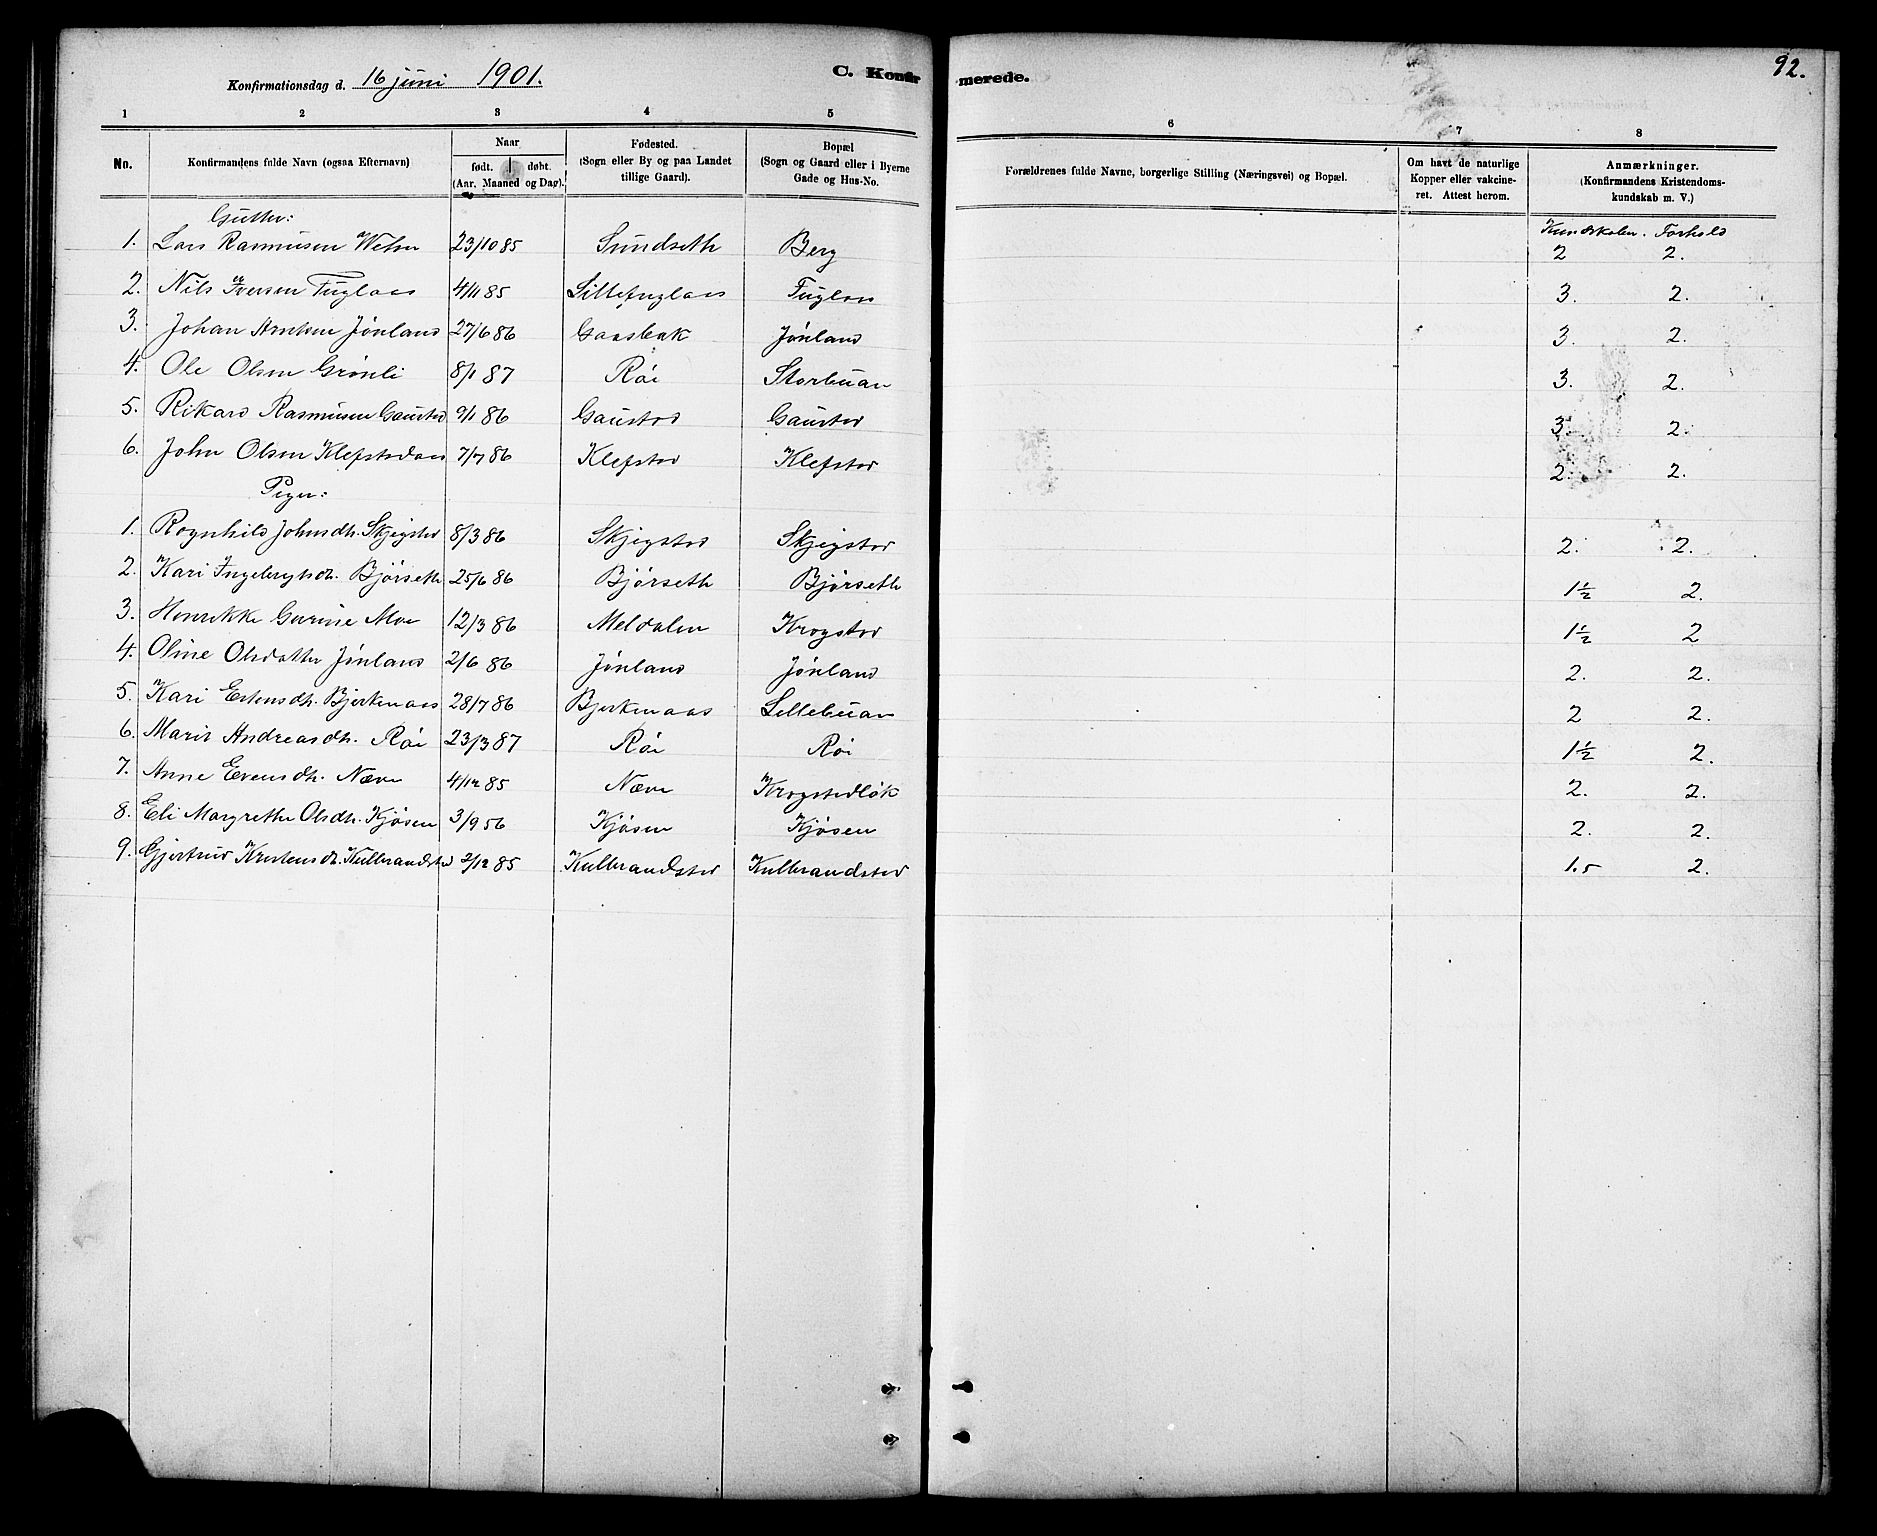 92.
Konfirmationsdag d. 16 juni 1901.
C. Konfirmerede.
1 2 3 4 5 6 7 8
No.
Konfirmandens fulde Navn (ogsaa Efternavn)
Naar
født. døbt.
(Aar, Maaned og Dag).
Fødested.
(Sogn eller By og paa Landet
tillige Gaard).
Bopæl
(Sogn og Gaard eller i Byerne
Gade og Hus-No.
Forældrenes fulde Navne, borgerlige Stilling (Næringsvei) og Bopæl.
Om havt de naturlige
Kopper eller vakcine-
ret. Attest herom.
Anmærkninger.
(Konfirmandens Kristendoms-
kundskab m. V.)
Gutter:
Kundskaber. Forhold
1. Lars Rasmusen 23/10 85 Sundseth Berg 2 2.
2. Nils Iversen Fuglaas 4/11 85 Lillefuglaas Fuglaas 3. 2.
3. Johan Arntsen Jønland 27/6 86 Gaasbak Jønland 3. 2.
4. Ole Olsen Grønli 8/1 87 Røi Storbuan 3. 2.
5. Rikard Rasmusen Gaustad 9/1 86 Gaustad Gaustad 3. 2.
6. John Olsen Klefstadaas 7/7 86 Klefstad Klefstad 2. 2.
Piger:
1. Ragnhild Johnsdtr. Skjegstad 8/3 86 Skjegstad Skjegstad 2. 2.
2. Kari Ingebrigtsdt. Bjørseth 25/6 86 Bjørseth Bjørseth 1½ 2.
3. Henrikke Gurine Moe 12/3 86 Meldalen Krogstad 1½ 2
4. Oline Olsdatter Jønland 2/6 86 Jønland Jønland 2. 2.
5. Kari Estensdtr. Bjerkenaas 28/7 86 Bjerkenaas Lillebuan 2 2.
6. Marit Andreasdtr. Røi 23/3 87 Røi Røi 1½ 2.
7. Anne Evensdtr. Næve 4/12 85 Næve Krogstadløk 2. 2.
8. Eli Margrethe Olsdtr. Kjøsen 3/9 56 Kjøsen Kjøsen 2. 2.
9. Gjertrud Kristensdt. Kulbrandstad 2/12 85 Kulbrandstad Kulbrandstad 1.5 2.